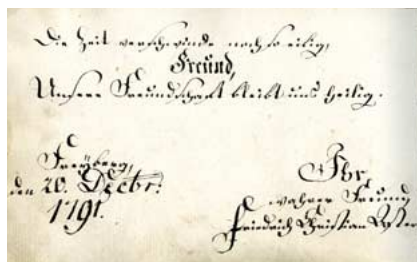 Die Zeit verschwinde noch so eilig,
Freünd,
Unsere Freundschaft bleibt uns heilig.
Freyberg,
den 20. Decbr:
1791.
Ihr
wahrer Freund
Friedrich Christian